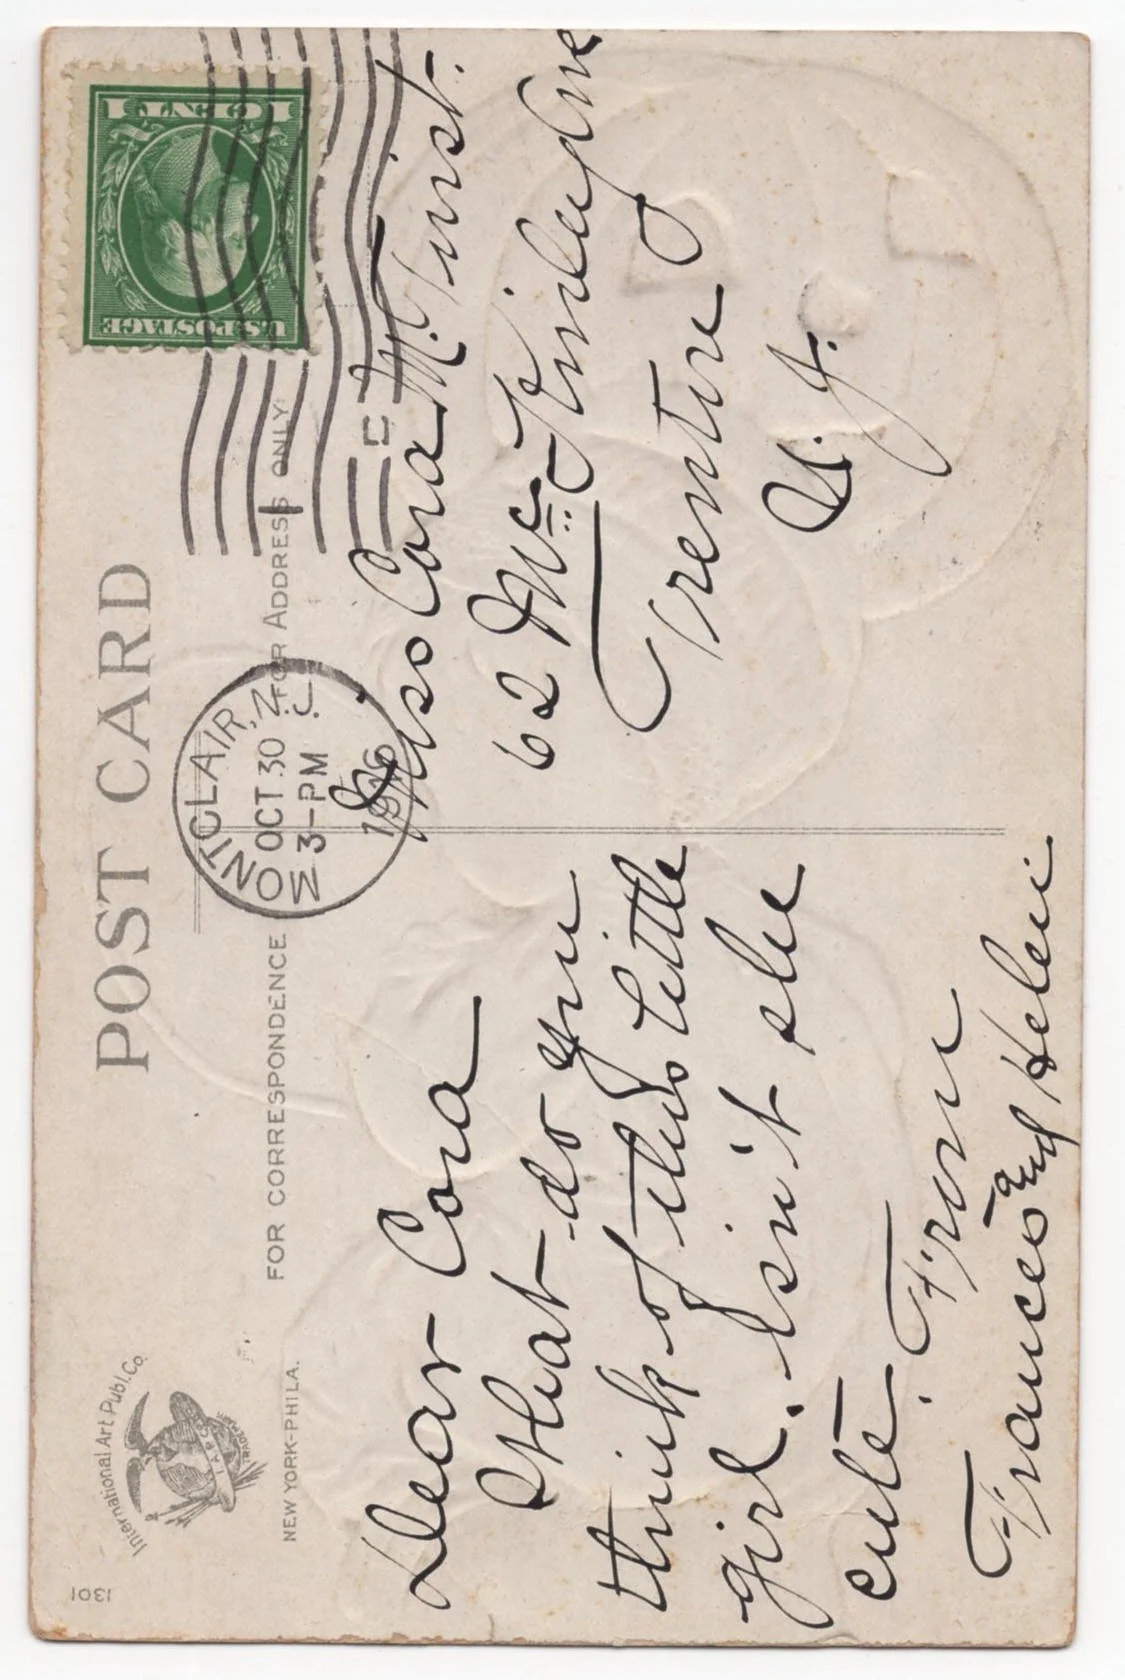 1301
International Art Publ. Co.
I.A.P.Co.
TRADEMARK
NEW YORK-PHILA.
POST CARD
FOR CORRESPONDENCE
FOR ADDRESS ONLY.
U.S. POSTAGE
1 CENT 1
MONTCLAIR, N.J.
OCT 30
3-PM
Dear Cora
What do you
think of this little
girl. Isn't she
cute. From
Frances and Helen
Miss Cora M. Twist.
62 Mc Kinley Ave
Trenton
N. J.